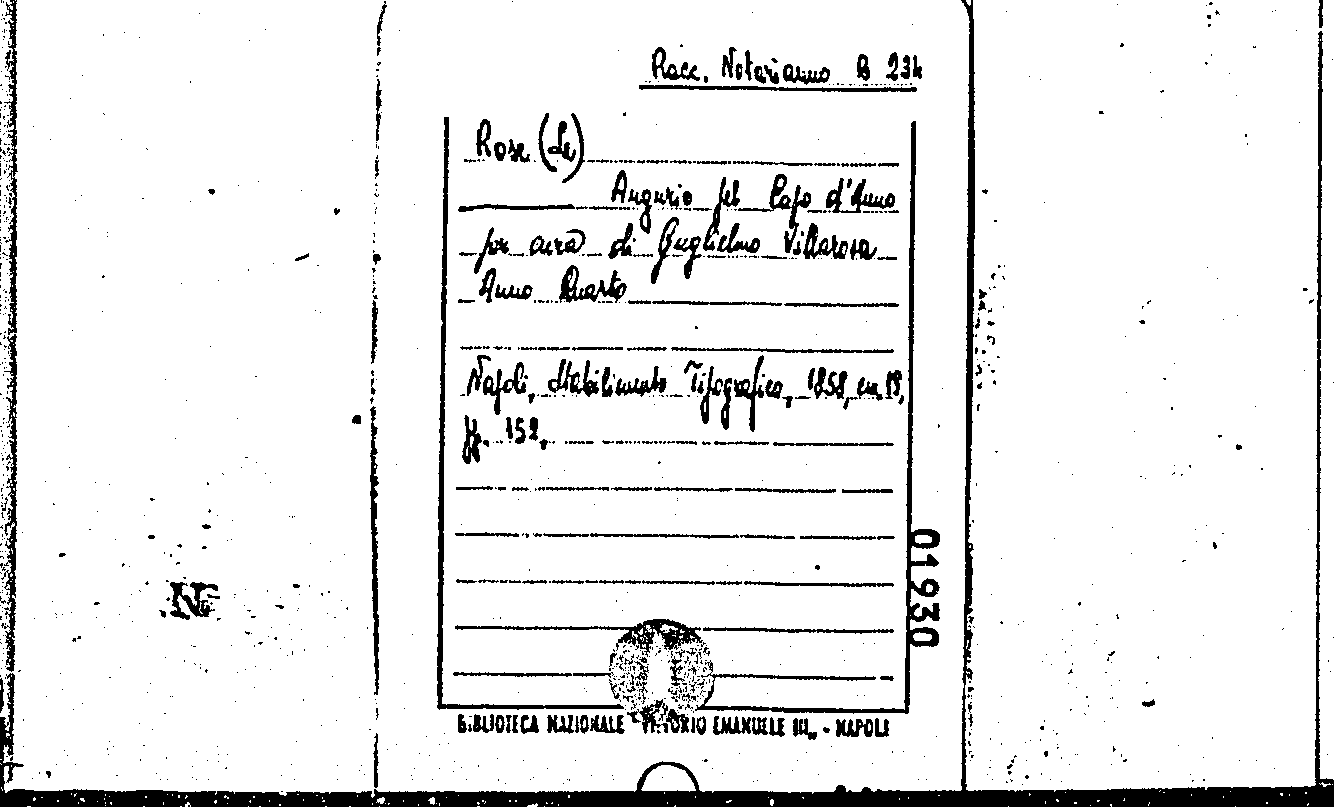 Racc. Notarianno B 234
Rose (Le)
Augurio pel Capo d'Anno
per cura di Guglielmo Villarosa
Anno Quarto
Napoli, Stabilimento Tipografico, 1858, in 18,
pp. 152.
01930
No
BIBLIOTECA NAZIONALE "VITTORIO EMANUELE III" - NAPOLI